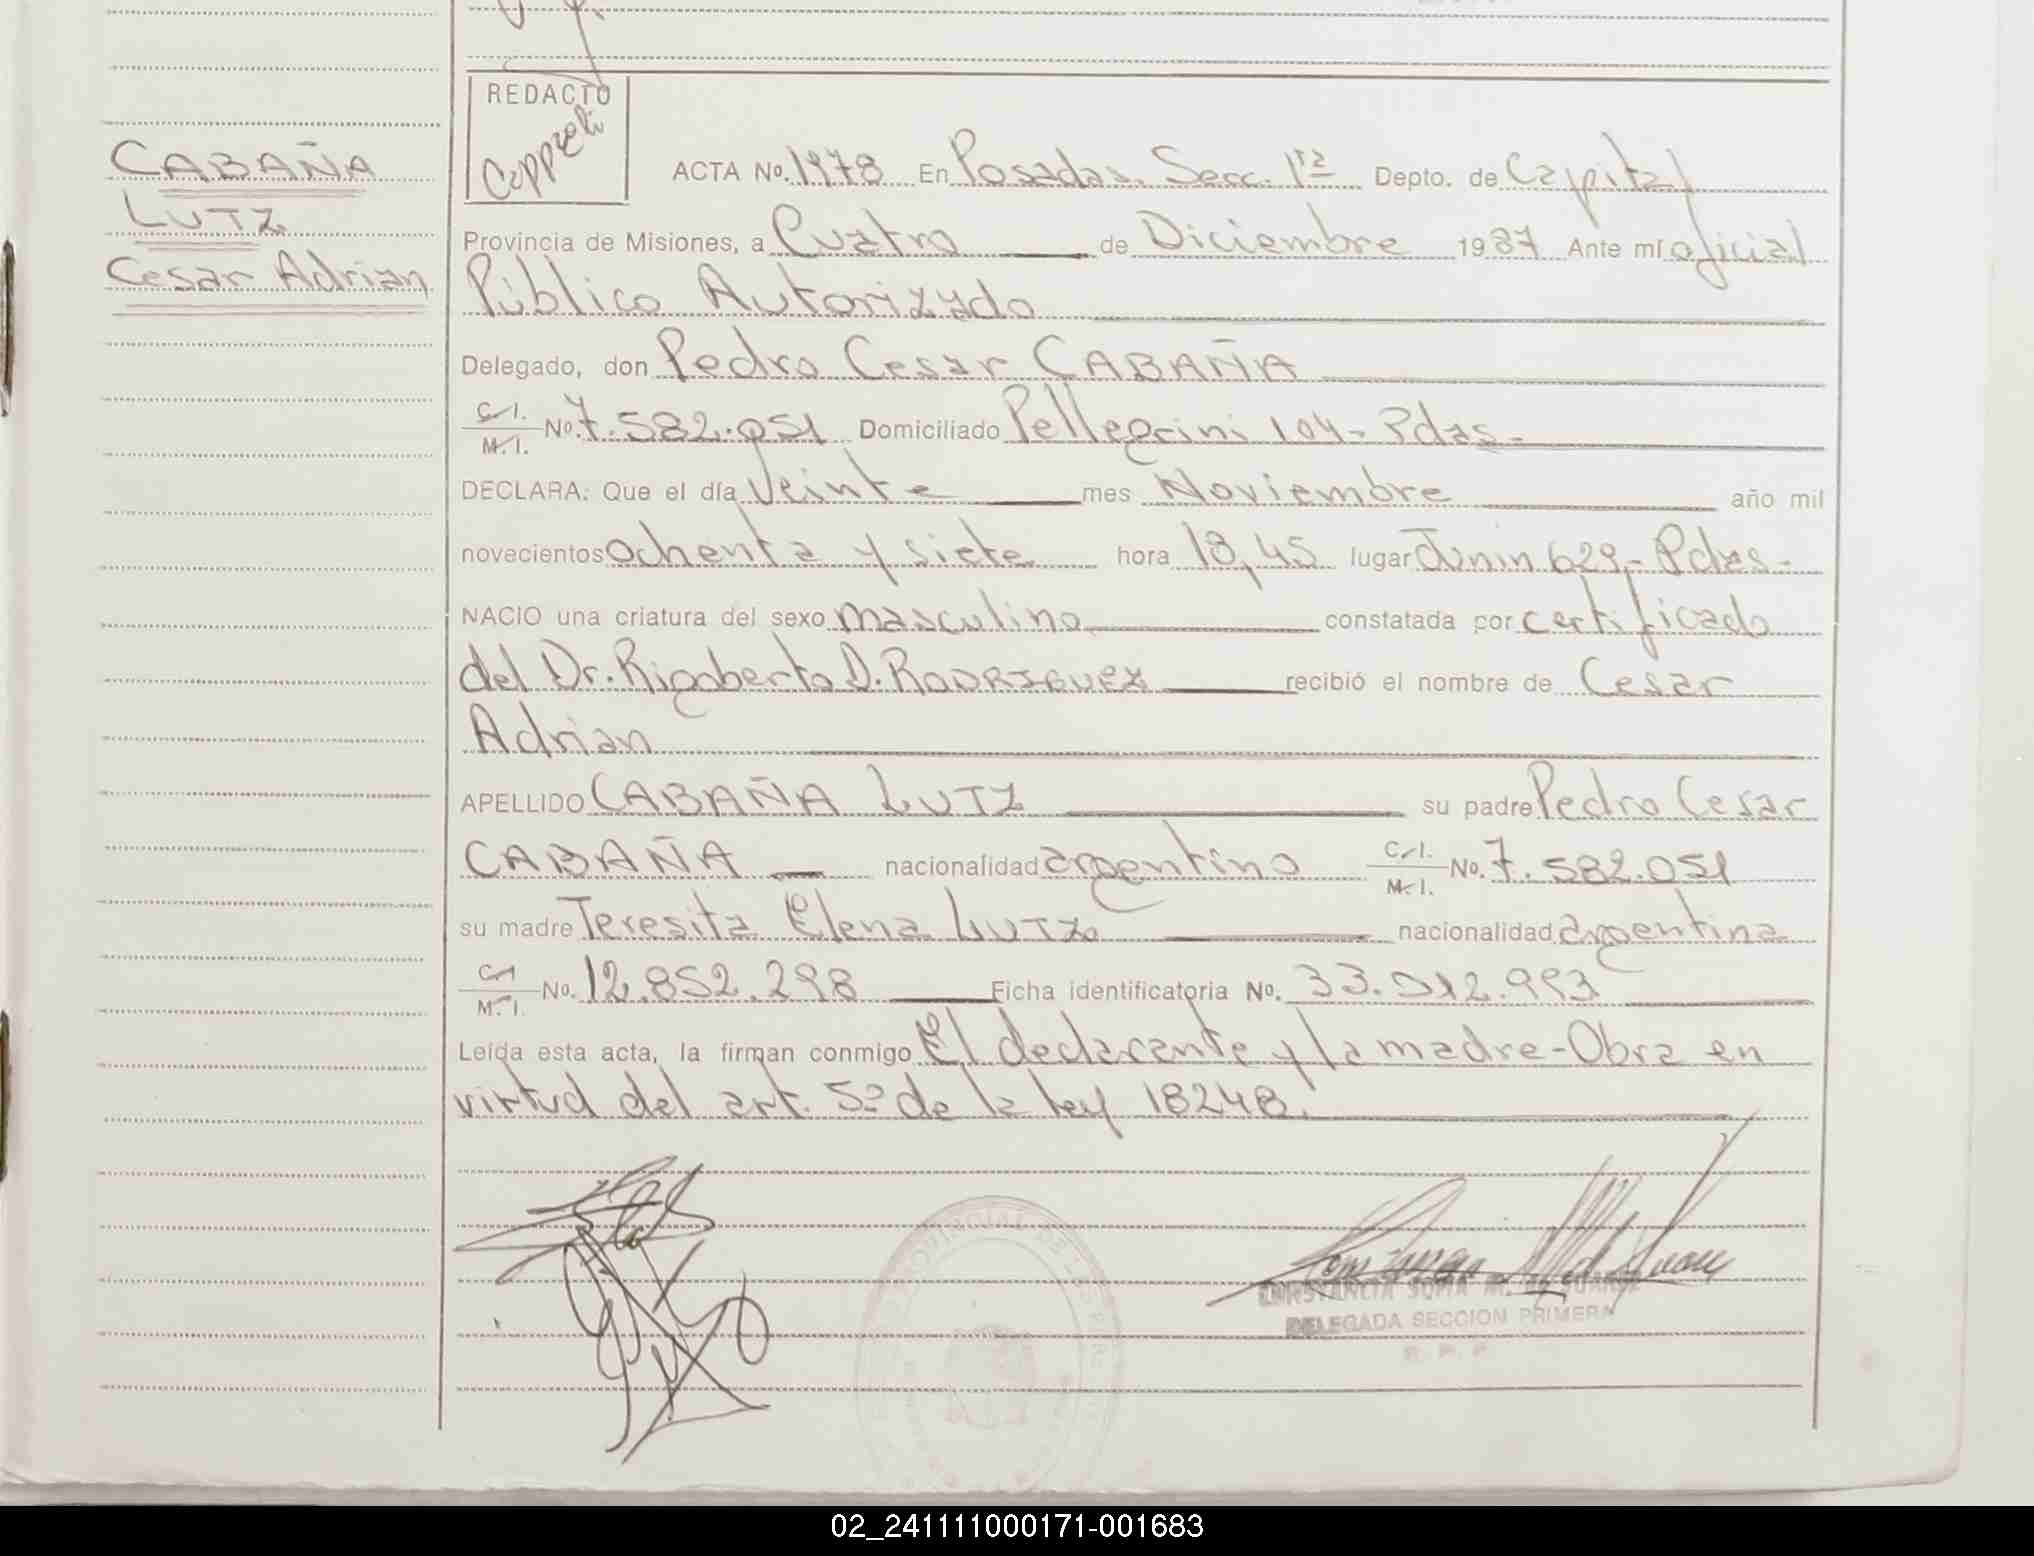 REDACTO
CABAÑA
LUTZ
Cesar Adrian
ACTA No. 1978 En Posadas. Secc. 1ra Depto. de Capital
Provincia de Misiones, a Cuatro de Diciembre 1987 Ante mí oficial
Público Autorizado
Delegado, don Pedro Cesar CABAÑA
C.I. M.I. No. 7.582.051 Domiciliado Pellegrini 104- Pdas-
DECLARA: Que el día veinte mes Noviembre año mil
novecientos ochenta y siete hora 18,45 lugar Junin 629,- Pdas-
NACIO una criatura del sexo masculino constatada por certificado
del Dr. Rigoberto D. RODRIGUEZ recibió el nombre de Cesar
Adrian
APELLIDO CABAÑA LUTZ su padre Pedro Cesar
CABAÑA nacionalidad argentino C.I. M.I. No. 7.582.051
su madre Teresita Elena LUTZ nacionalidad argentina
C.I. M.I. No. 12.852.298 Ficha identificatoria No. 33.012.993
Leída esta acta, la firman conmigo El declarante y la madre-Obra en
virtud del art. 5º de la ley 18248.
DELEGADA SECCION PRIMERA
R. P. P.
02_241111000171-001683